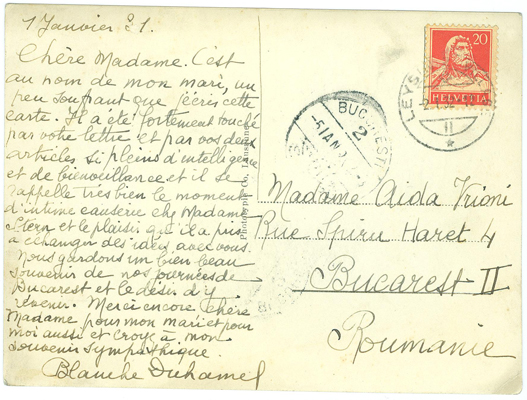 1 Janvier 31.
Chère Madame. C'est
au nom de mon mari, un
peu souffrant que j'écris cette
carte. Il a été fortement touché
par votre lettre et par vos deux
articles si pleins d'intelligence
et de bienveillance et il se
rappelle très bien le moment
d'intime causerie chez Madame
Stern et le plaisir qu'il a pris
à échanger des idées avec vous.
Nous gardons un bien beau
souvenir de nos journées de
Bucarest et le désir d'y
revenir. Merci encore chère
Madame pour mon mari et pour
moi aussi et croyez à mon
souvenir sympathique.
Blanche Duhamel
Photographie Co., Lausanne
20
HELVETIA
LEYSIN
II
BUCURESTI
2
Madame Aida Vrioni
Rue Spiru Haret 4
Bucarest II
Roumanie